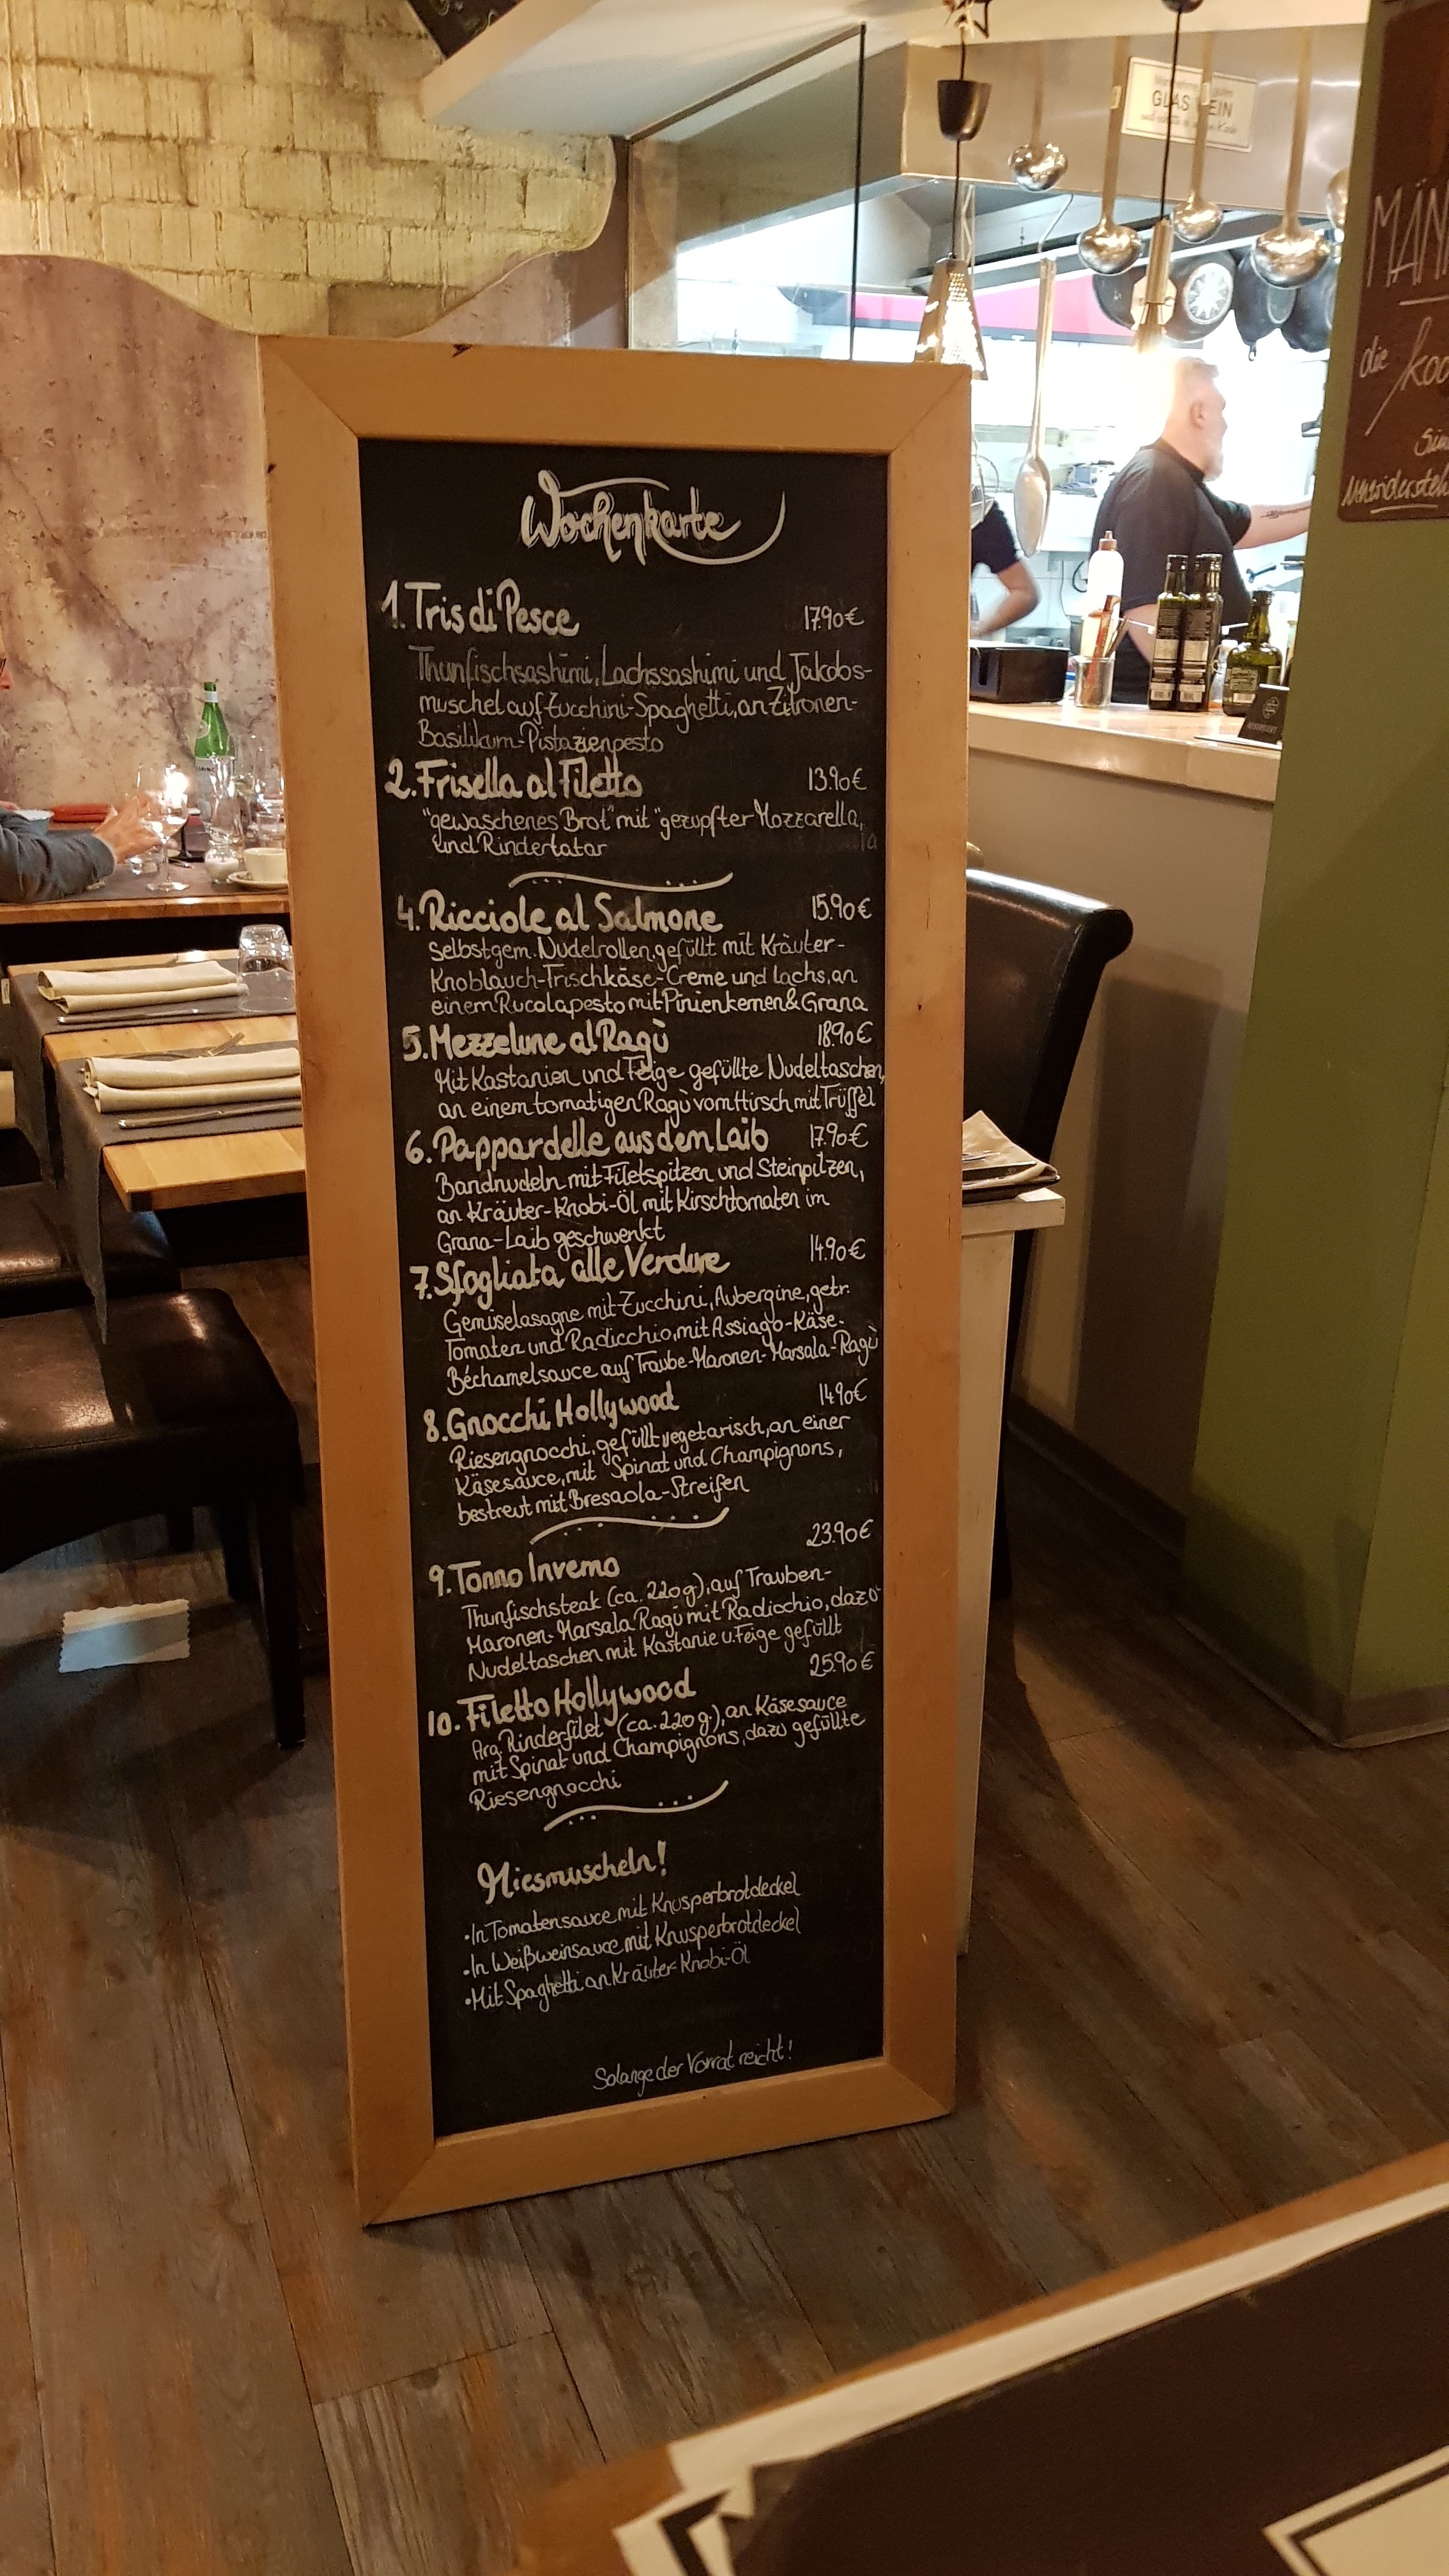 Wochenkarte
1. Tris di Pesce 17.90€
Thunfischsashimi, Lachssashimi und Jakobs-
muschel auf Zucchini-Spaghetti, an Zitronen-
Basilikum-Pistazienpesto
2. Frisella al Filetto 13.90€
"gewaschenes Brot" mit "gezupfter Mozzarella,
und Rindertatar
4. Ricciole al Salmone 15.90€
selbstgem. Nudelrollen, gefüllt mit Kräuter-
Knoblauch-Frischkäse-Creme und Lachs, an
einem Rucolapesto mit Pinienkernen & Grana
5. Mezzelune al Ragù 18.90€
Mit Kastanien und Feige gefüllte Nudeltaschen,
an einem tomatigen Ragù vom Hirsch mit Trüffel
6. Pappardelle aus dem Laib 17.90€
Bandnudeln mit Filetspitzen und Steinpilzen,
an Kräuter-Knobi-Öl mit Kirschtomaten im
Grana-Laib geschwenkt
7. Sfogliata alle Verdure 14.90€
Gemüselasagne mit Zucchini, Aubergine, getr.
Tomaten und Radicchio, mit Assiago-Käse-
Béchamelsauce auf Traube-Maronen-Marsala-Ragù
8. Gnocchi Hollywood 14.90€
Riesengnocchi, gefüllt vegetarisch, an einer
Käsesauce, mit Spinat und Champignons,
bestreut mit Bresaola-Streifen
9. Tonno Inverno 23.90€
Thunfischsteak (ca. 220g), auf Trauben-
Maronen-Marsala Ragù mit Radicchio, dazu
Nudeltaschen mit Kastanie u. Feige gefüllt
10. Filetto Hollywood 25.90€
Arg. Rinderfilet (ca. 220g.), an Käsesauce
mit Spinat und Champignons, dazu gefüllte
Riesengnocchi
Miesmuscheln!
• In Tomatensauce mit Knusperbrotdeckel
• In Weißweinsauce mit Knusperbrotdeckel
• Mit Spaghetti an Kräuter-Knobi-Öl
Solange der Vorrat reicht!
GLAS
die